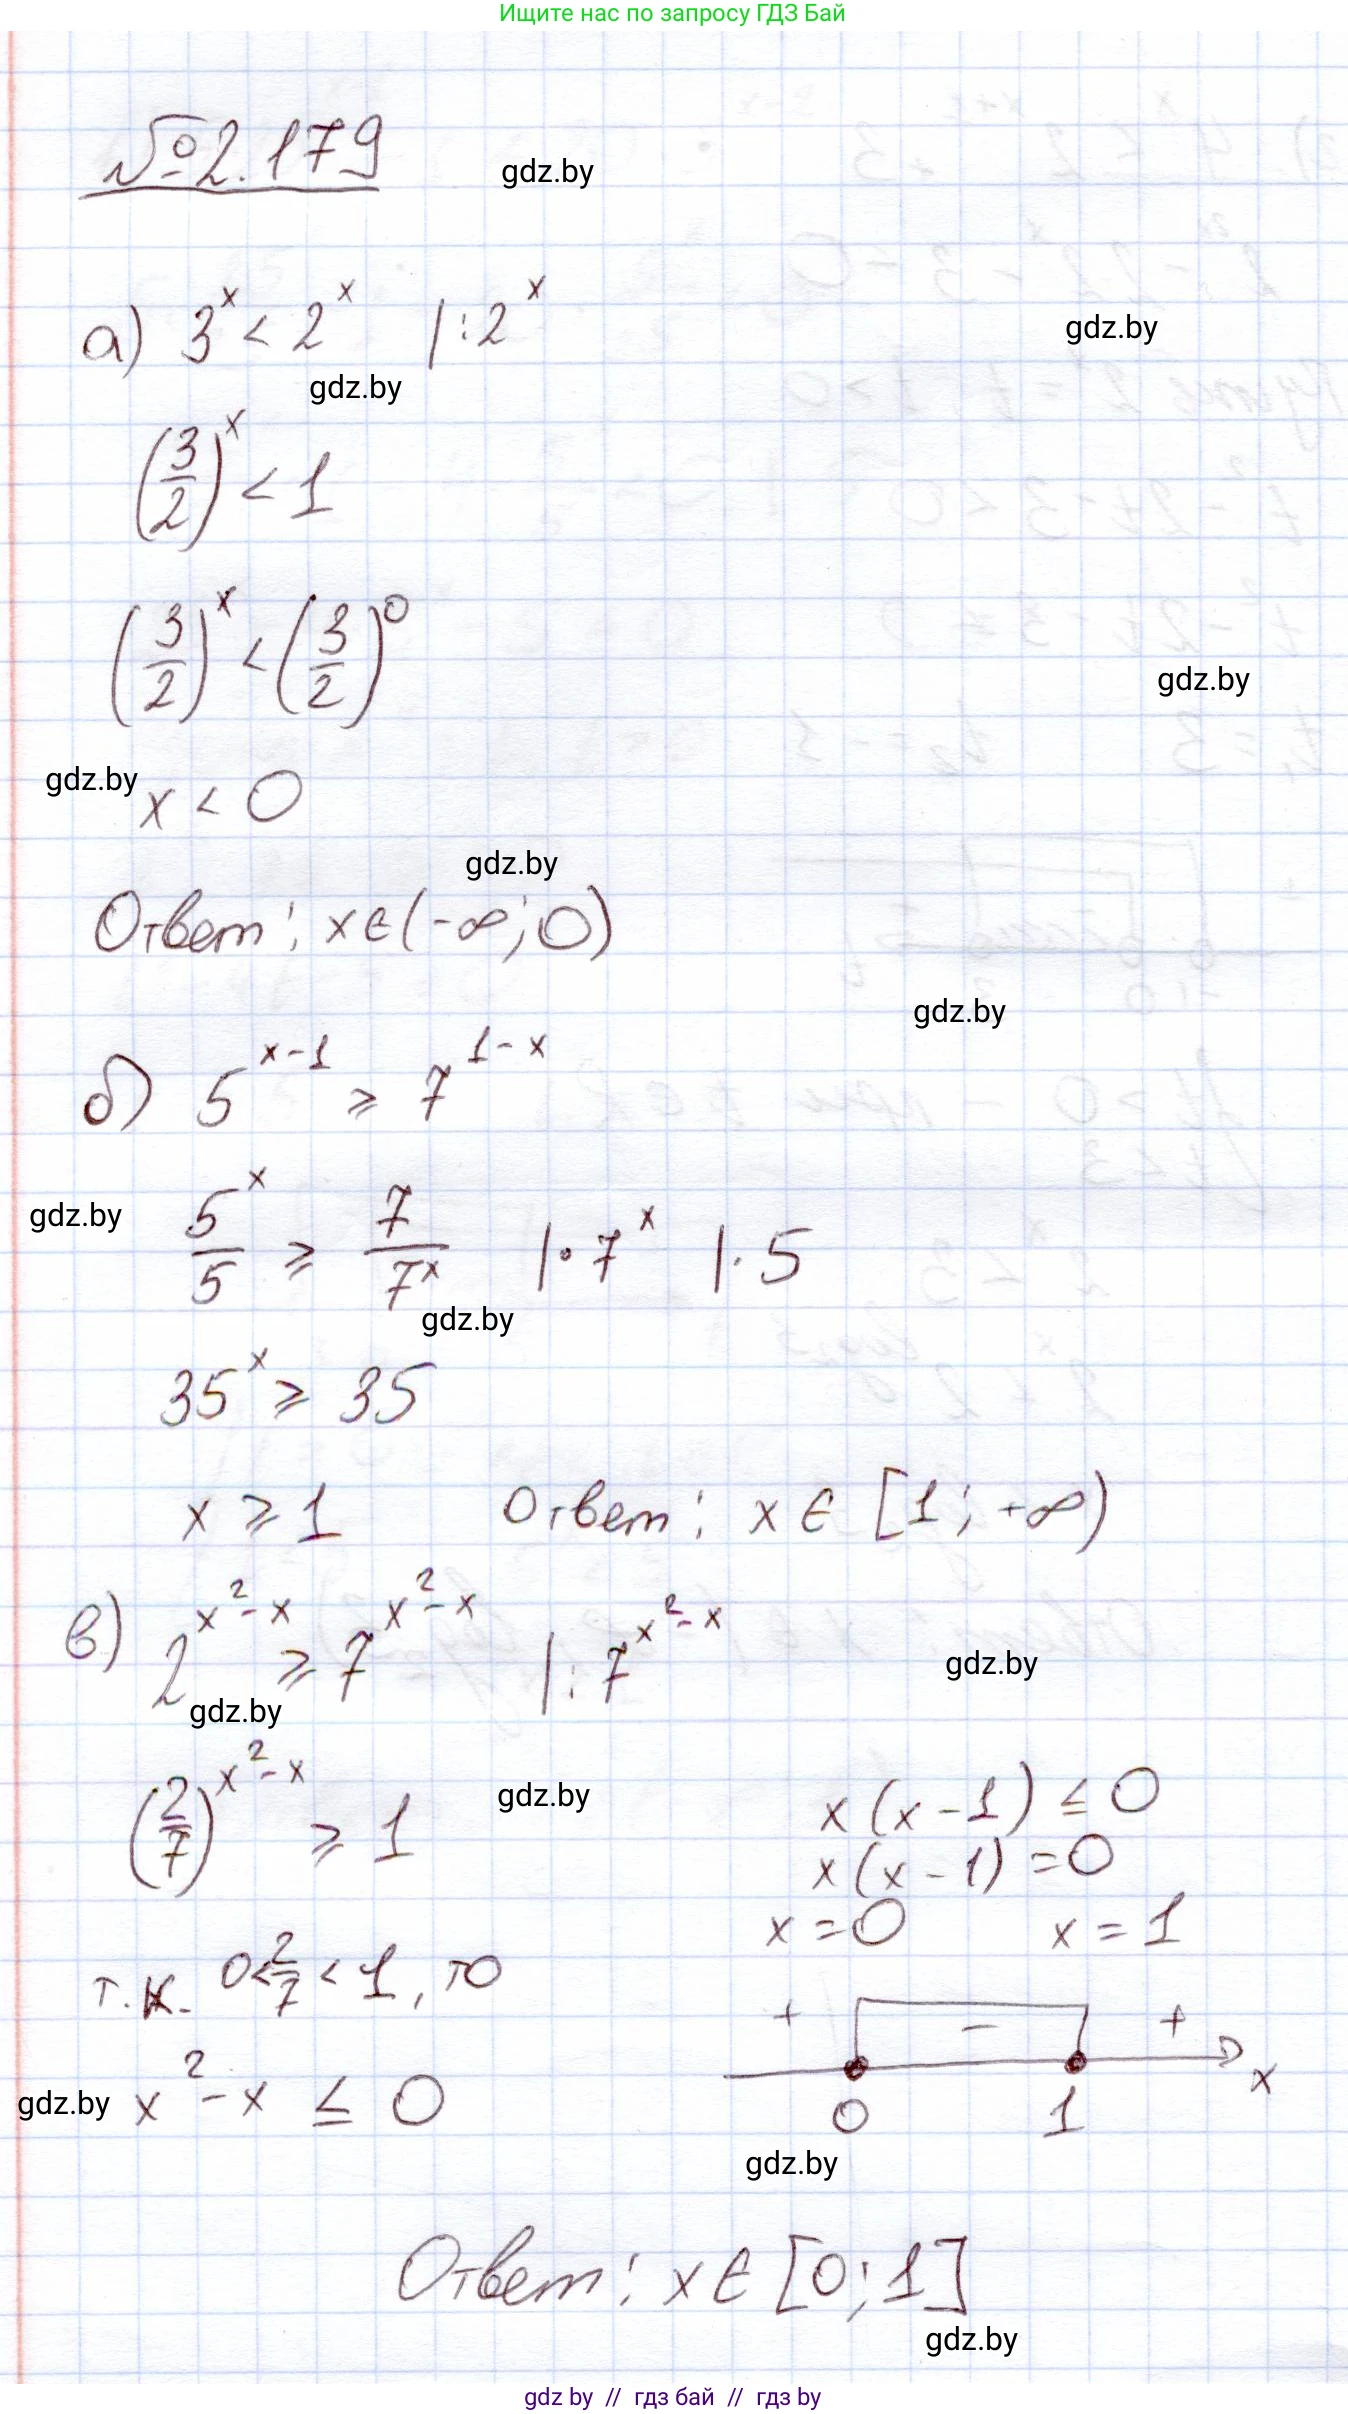 Ищите нас по запросу ГДЗ Бай
№2.179
gdz.by
а) 3^x < 2^x |:2^x
gdz.by
gdz.by
(3/2)^x < 1
(3/2)^x < (3/2)^0
gdz.by
gdz.by
x < 0
gdz.by
Ответ: x∈(-∞; 0)
gdz.by
б) 5^(x-1) ⩾ 7^(1-x)
gdz.by
5^x/5 ⩾ 7/7^x |·7^x |·5
gdz.by
35^x ⩾ 35
x ⩾ 1 Ответ: x ∈ [1; +∞)
в) 2^(x^2-x) ⩾ 7^(x^2-x) |:7^(x^2-x)
gdz.by
gdz.by
(2/7)^(x^2-x) ⩾ 1
gdz.by
т.к. 0<2/7<1, то
x^2 - x ≤ 0
gdz.by
x(x-1) ≤ 0
x(x-1) = 0
x = 0 x = 1
+ − +
0 1 x
gdz.by
Ответ: x∈[0;1]
gdz.by
gdz by // гдз бай // гдз by